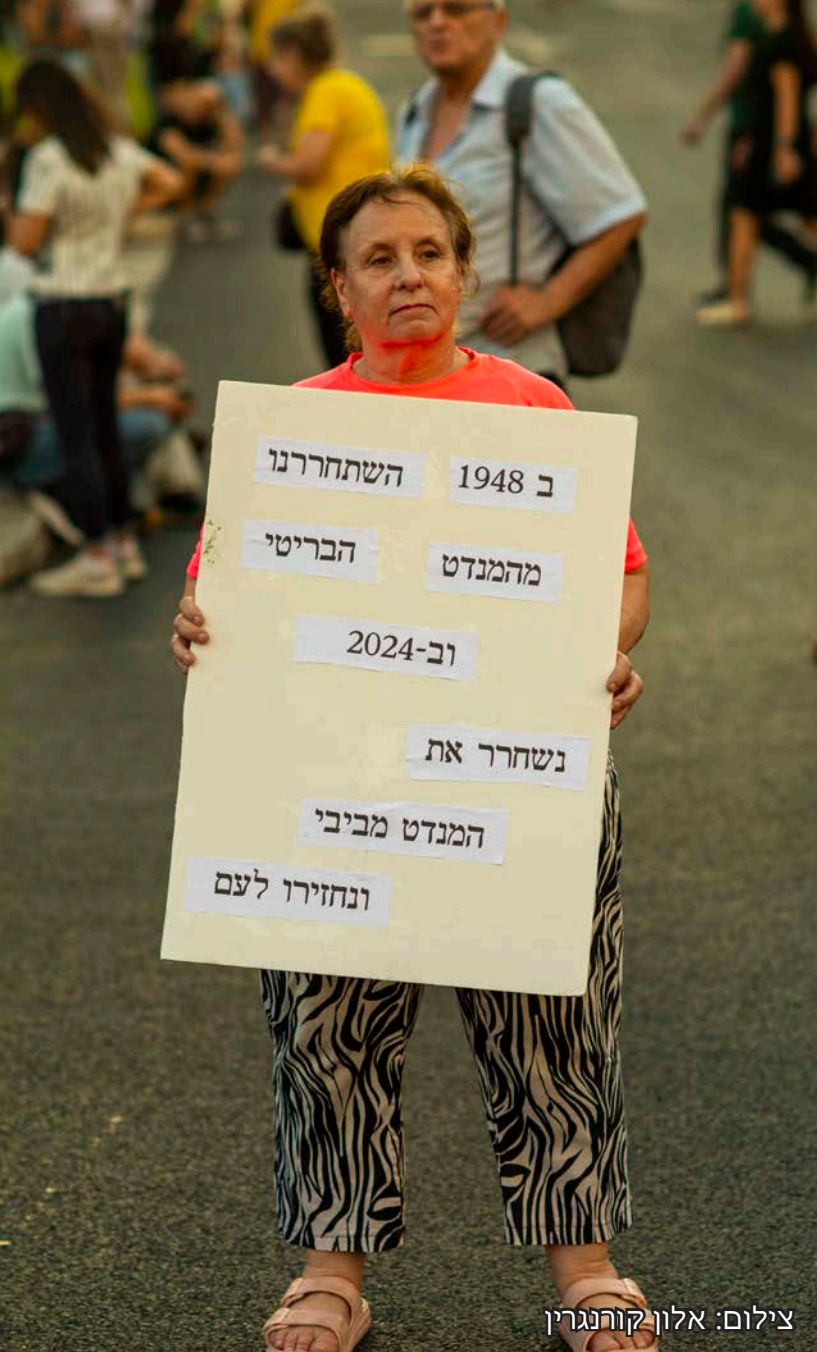 ב 1948 השתחררנו
מהמנדט הבריטי
וב-2024
נשחרר את
המנדט מביבי
ונחזירו לעם
צילום: אלון קורנגרין